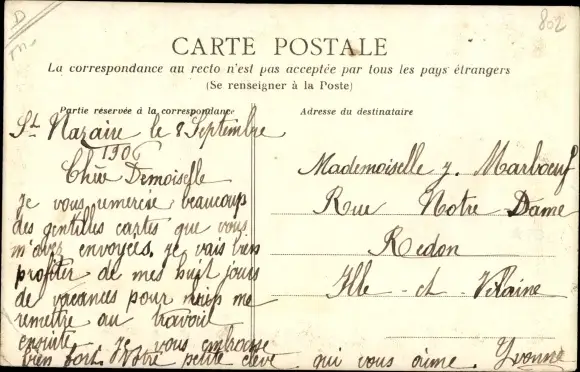 802
CARTE POSTALE
La correspondance au recto n'est pas acceptée par tous les pays étrangers
(Se renseigner à la Poste)
Partie réservée à la correspondance
St. Nazaire le 8 Septembre
1906
Chère Demoiselle
je vous remercie beaucoup
des gentilles cartes que vous
m'avez envoyées. je vais bien
profiter de mes huit jours
de vacances pour me
remettre au travail
ensuite. je vous embrasse
bien fort. Votre petite élève qui vous aime. Yvonne
Adresse du destinataire
Mademoiselle y. Marboeuf
Rue Notre Dame
Redon
Ille - et - Vilaine